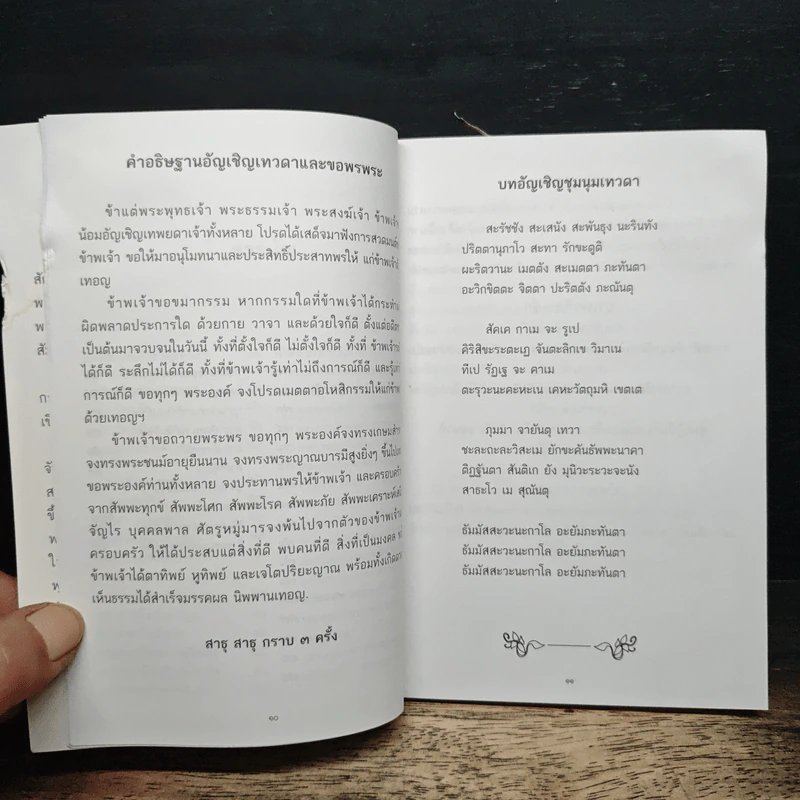 คำอธิษฐานอัญเชิญเทวดาและขอพรพระ
ข้าแต่พระพุทธเจ้า พระธรรมเจ้า พระสงฆ์เจ้า ข้าพเจ้า
น้อมอัญเชิญเทพยดาเจ้าทั้งหลาย โปรดได้เสด็จมาฟังการสวดมนต์
ข้าพเจ้า ขอให้มาอนุโมทนาและประสิทธิ์ประสาทพรให้ แก่ข้าพเจ้า
เทอญ
ข้าพเจ้าขอขมากรรม หากกรรมใดที่ข้าพเจ้าได้กระทำ
ผิดพลาดประการใด ด้วยกาย วาจา และด้วยใจก็ดี ตั้งแต่อดีต
เป็นต้นมาจวบจนในวันนี้ ทั้งที่ตั้งใจก็ดี ไม่ตั้งใจก็ดี ทั้งที่
ได้ก็ดี ระลึกไม่ได้ก็ดี ทั้งที่ข้าพเจ้ารู้เท่าไม่ถึงการณ์ก็ดี และรู้เท่า
การณ์ก็ดี ขอทุกๆ พระองค์ จงโปรดเมตตาอโหสิกรรมให้แก่ข้าพ
ด้วยเทอญฯ
ข้าพเจ้าขอถวายพระพร ขอทุกๆ พระองค์จงทรงเกษมสำรา
จงทรงพระชนม์อายุยืนนาน จงทรงพระญาณบารมีสูงยิ่งๆ ขึ้นไป
ขอพระองค์ท่านทั้งหลาย จงประทานพรให้ข้าพเจ้า และครอบครัว
จากสัพพะทุกข์ สัพพะโศก สัพพะโรค สัพพะภัย สัพพะเคราะห์
จัญไร บุคคลพาล ศัตรูหมู่มารจงพ้นไปจากตัวของข้าพเจ้า
ครอบครัว ให้ได้ประสบแต่สิ่งที่ดี พบคนที่ดี สิ่งที่เป็นมงคล
ข้าพเจ้าได้ตาทิพย์ หูทิพย์ และเจโตปริยะญาณ พร้อมทั้งเกิดดวง
เห็นธรรมได้สำเร็จมรรคผล นิพพานเทอญ.
สาธุ สาธุ กราบ ๓ ครั้ง
๑๐
บทอัญเชิญชุมนุมเทวดา
สะรัชชัง สะเสนัง สะพันธุง นะรินทัง
ปริตตานุภาโว สะทา รักขะตูติ
ผะริตวานะ เมตตัง สะเมตตา ภะทันตา
อะวิกขิตตะ จิตตา ปะริตตัง ภะณันตุ
สัคเค กาเม จะ รูเป
คิริสิขะระตะเฏ จันตะลิกเข วิมาเน
ทีเป รัฏเฐ จะ คาเม
ตะรุวะนะคะหะเน เคหะวัตถุมหิ เขตเต
ภุมมา จายันตุ เทวา
ชะละถะละวิสะเม ยักขะคันธัพพะนาคา
ติฏฐันตา สันติเก ยัง มุนิวะระวะจะนัง
สาธะโว เม สุณันตุ
ธัมมัสสะวะนะกาโล อะยัมภะทันตา
ธัมมัสสะวะนะกาโล อะยัมภะทันตา
ธัมมัสสะวะนะกาโล อะยัมภะทันตา
๑๑